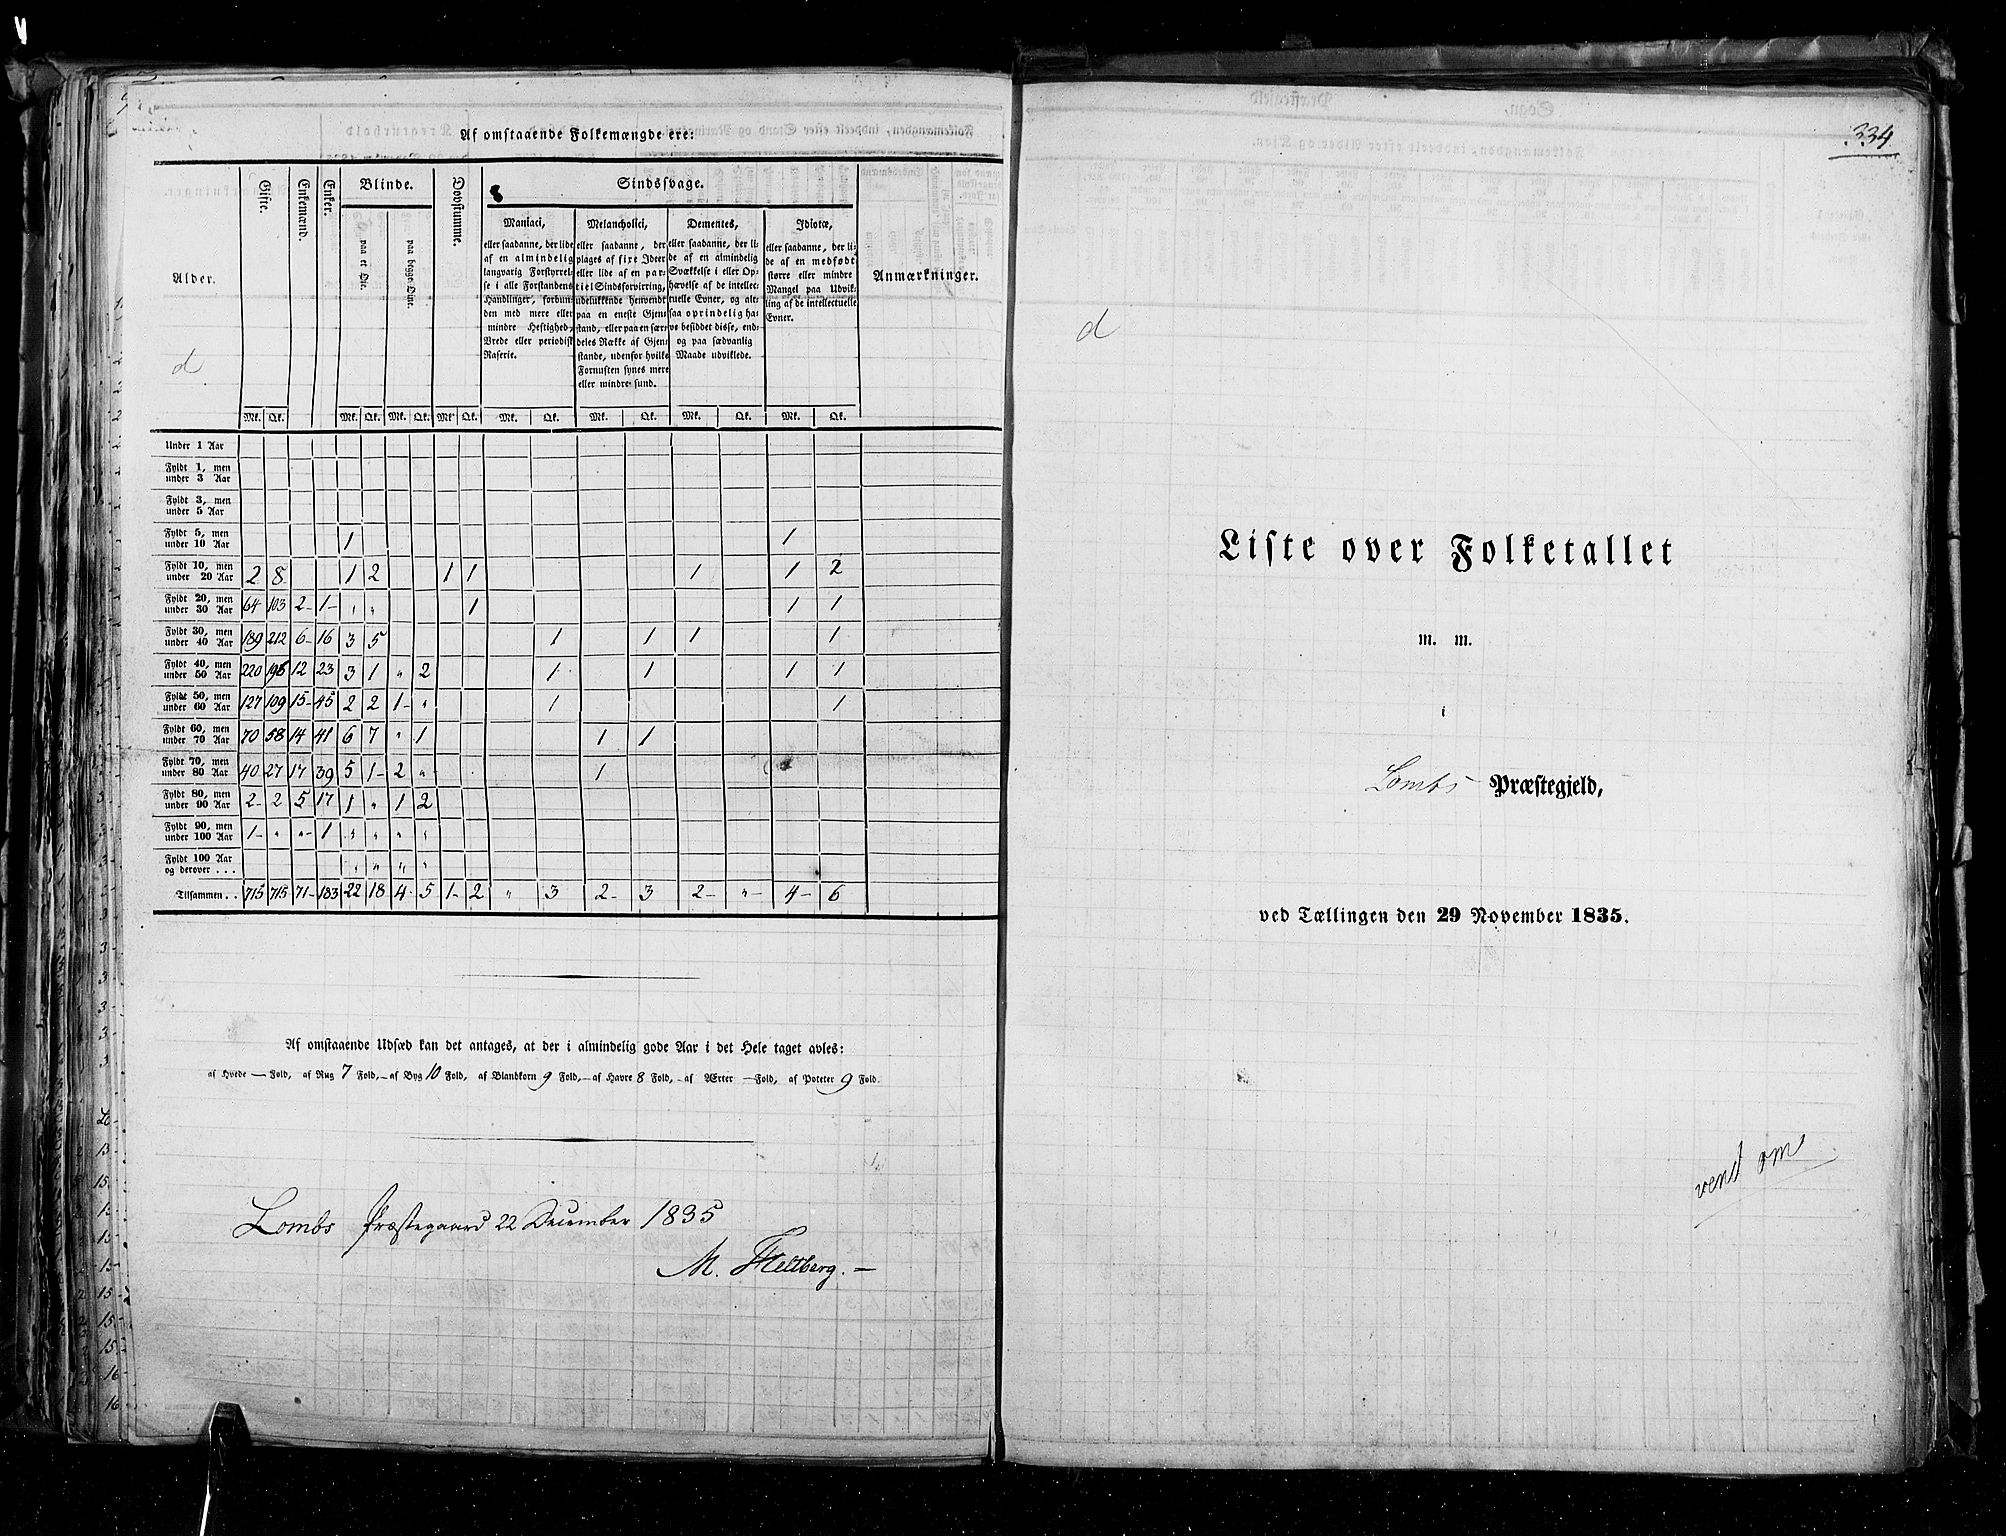 Af omstaaende Folkemængde ere:
Alder. Gifte. Enkemænd. Enker. Blinde. Døvstumme. Sindssvage. Anmærkninger.
paa et Øie. paa begge Øine.
Maniaci,
eller saadanne, der lide
af en almindelig
langvarig Forstyrrel-
se i alle Forstandens
Handlinger, forbun-
den med mere eller
mindre Heftighed,
Vrede eller periodisk
Raserie.
Melancholici,
eller saadanne, der
plages af fixe Ideer
eller lide af en par-
tiel Sindsforvirring,
udelukkende henvendt
paa en eneste Gjen-
stand, eller paa en sær-
deles Række af Gjen-
stande, udenfor hvilke
Fornuften synes mere
eller mindre sund.
Dementes,
eller saadanne, der li-
de af en almindelig
Svækkelse i eller Op-
hævelse af de intellec-
tuelle Evner, og alt-
saa oprindelig ha-
ve besiddet disse, end-
og paa sædvanlig
Maade udviklede.
Idiotæ,
eller saadanne, der li-
de af en medfødt
større eller mindre
Mangel paa Udvik-
ling af de intellectuelle
Evner.
d
Mk. Qk. Mk. Qk. Mk. Qk. Mk. Qk. Mk. Qk. Mk. Qk. Mk. Qk. Mk. Qk.
Under 1 Aar
Fyldt 1, men under 3 Aar
Fyldt 3, men under 5 Aar
Fyldt 5, men under 10 Aar 1 1
Fyldt 10, men under 20 Aar 2 8 1 2 1 1 1 1 2
Fyldt 20, men under 30 Aar 64 103 2- 1- " " 1 1 1
Fyldt 30, men under 40 Aar 189 212 6- 16 3 5 1 1 1 1
Fyldt 40, men under 50 Aar 220 195 12 23 3 1 " 2 1 1 1 1
Fyldt 50, men under 60 Aar 127 109 15- 45 2 2 1- " 1 1
Fyldt 60, men under 70 Aar 70 58 14 41 6 7 " 1 1 1
Fyldt 70, men under 80 Aar 40 27 17 39 5 1- 2 " 1
Fyldt 80, men under 90 Aar 2- 2 5 17 1 " 1 2
Fyldt 90, men under 100 Aar 1- " "- 1 " " " "
Fyldt 100 Aar og derover . . . " " " "
Tilsammen . . 715 715 71- 183 22 18 4- 5 1- 2 " 3 2- 3 2- "- 4- 6
Af omstaaende Udsæd kan det antages, at der i almindelig gode Aar i det Hele taget avles:
af Hvede — Fold, af Rug 7 Fold, af Byg 10 Fold, af Blandkorn 9 Fold, af Havre 8 Fold, af Ærter — Fold, af Poteter 9 Fold.
Lombs Præstegaard 22 December 1835
M. Heltberg. —
334
d
Liste over Folketallet
m. m.
i
Lombs Præstegjeld,
ved Tællingen den 29 November 1835.
vend om